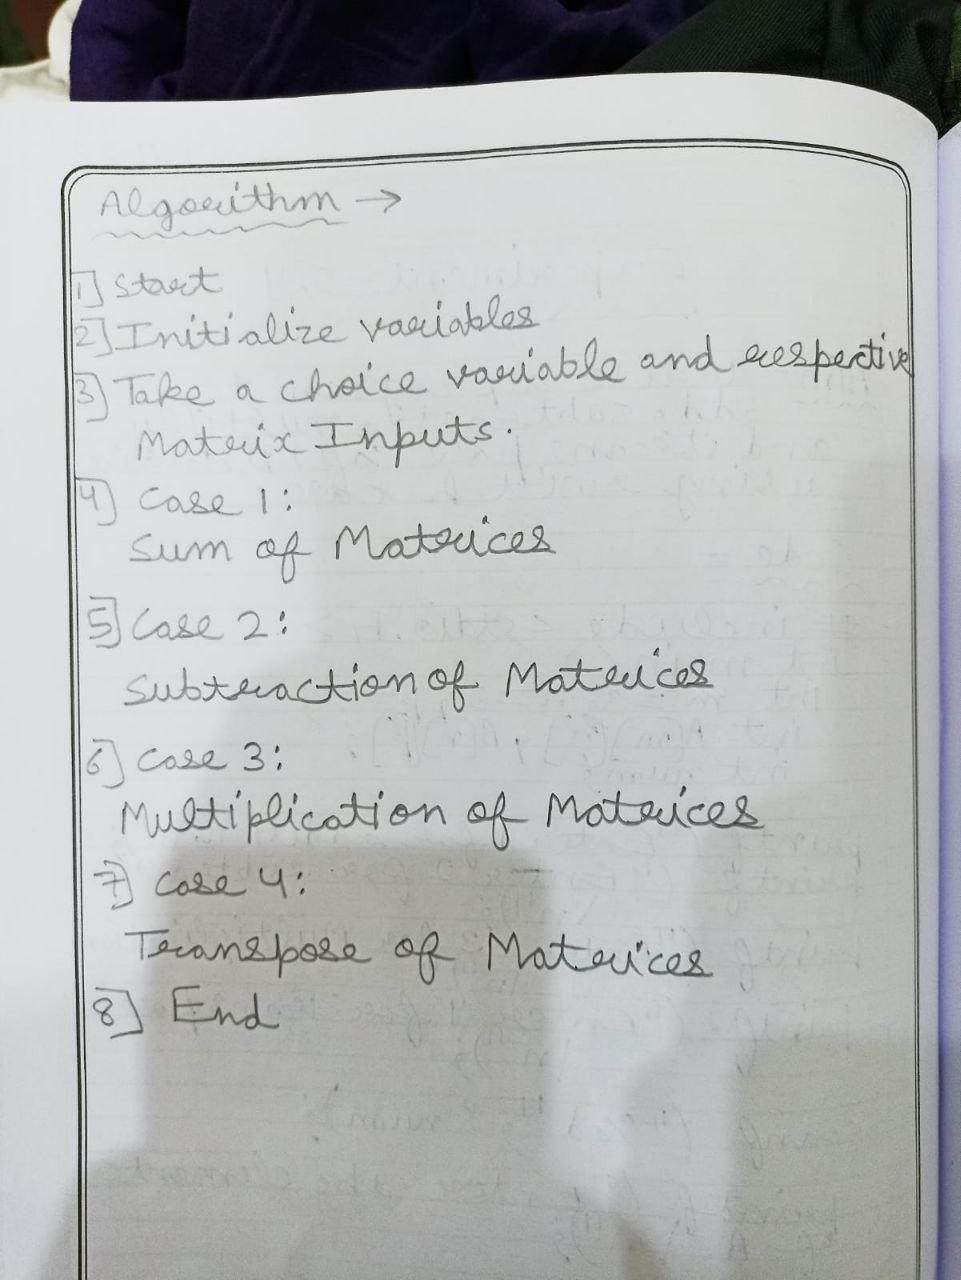 Algorithm →
1] Start
2] Initialize variables
3] Take a choice variable and respective
Matrix Inputs.
4] Case 1:
Sum of Matrices
5] Case 2:
Subtraction of Matrices
6] Case 3:
Multiplication of Matrices
7] Case 4:
Transpose of Matrices
8] End